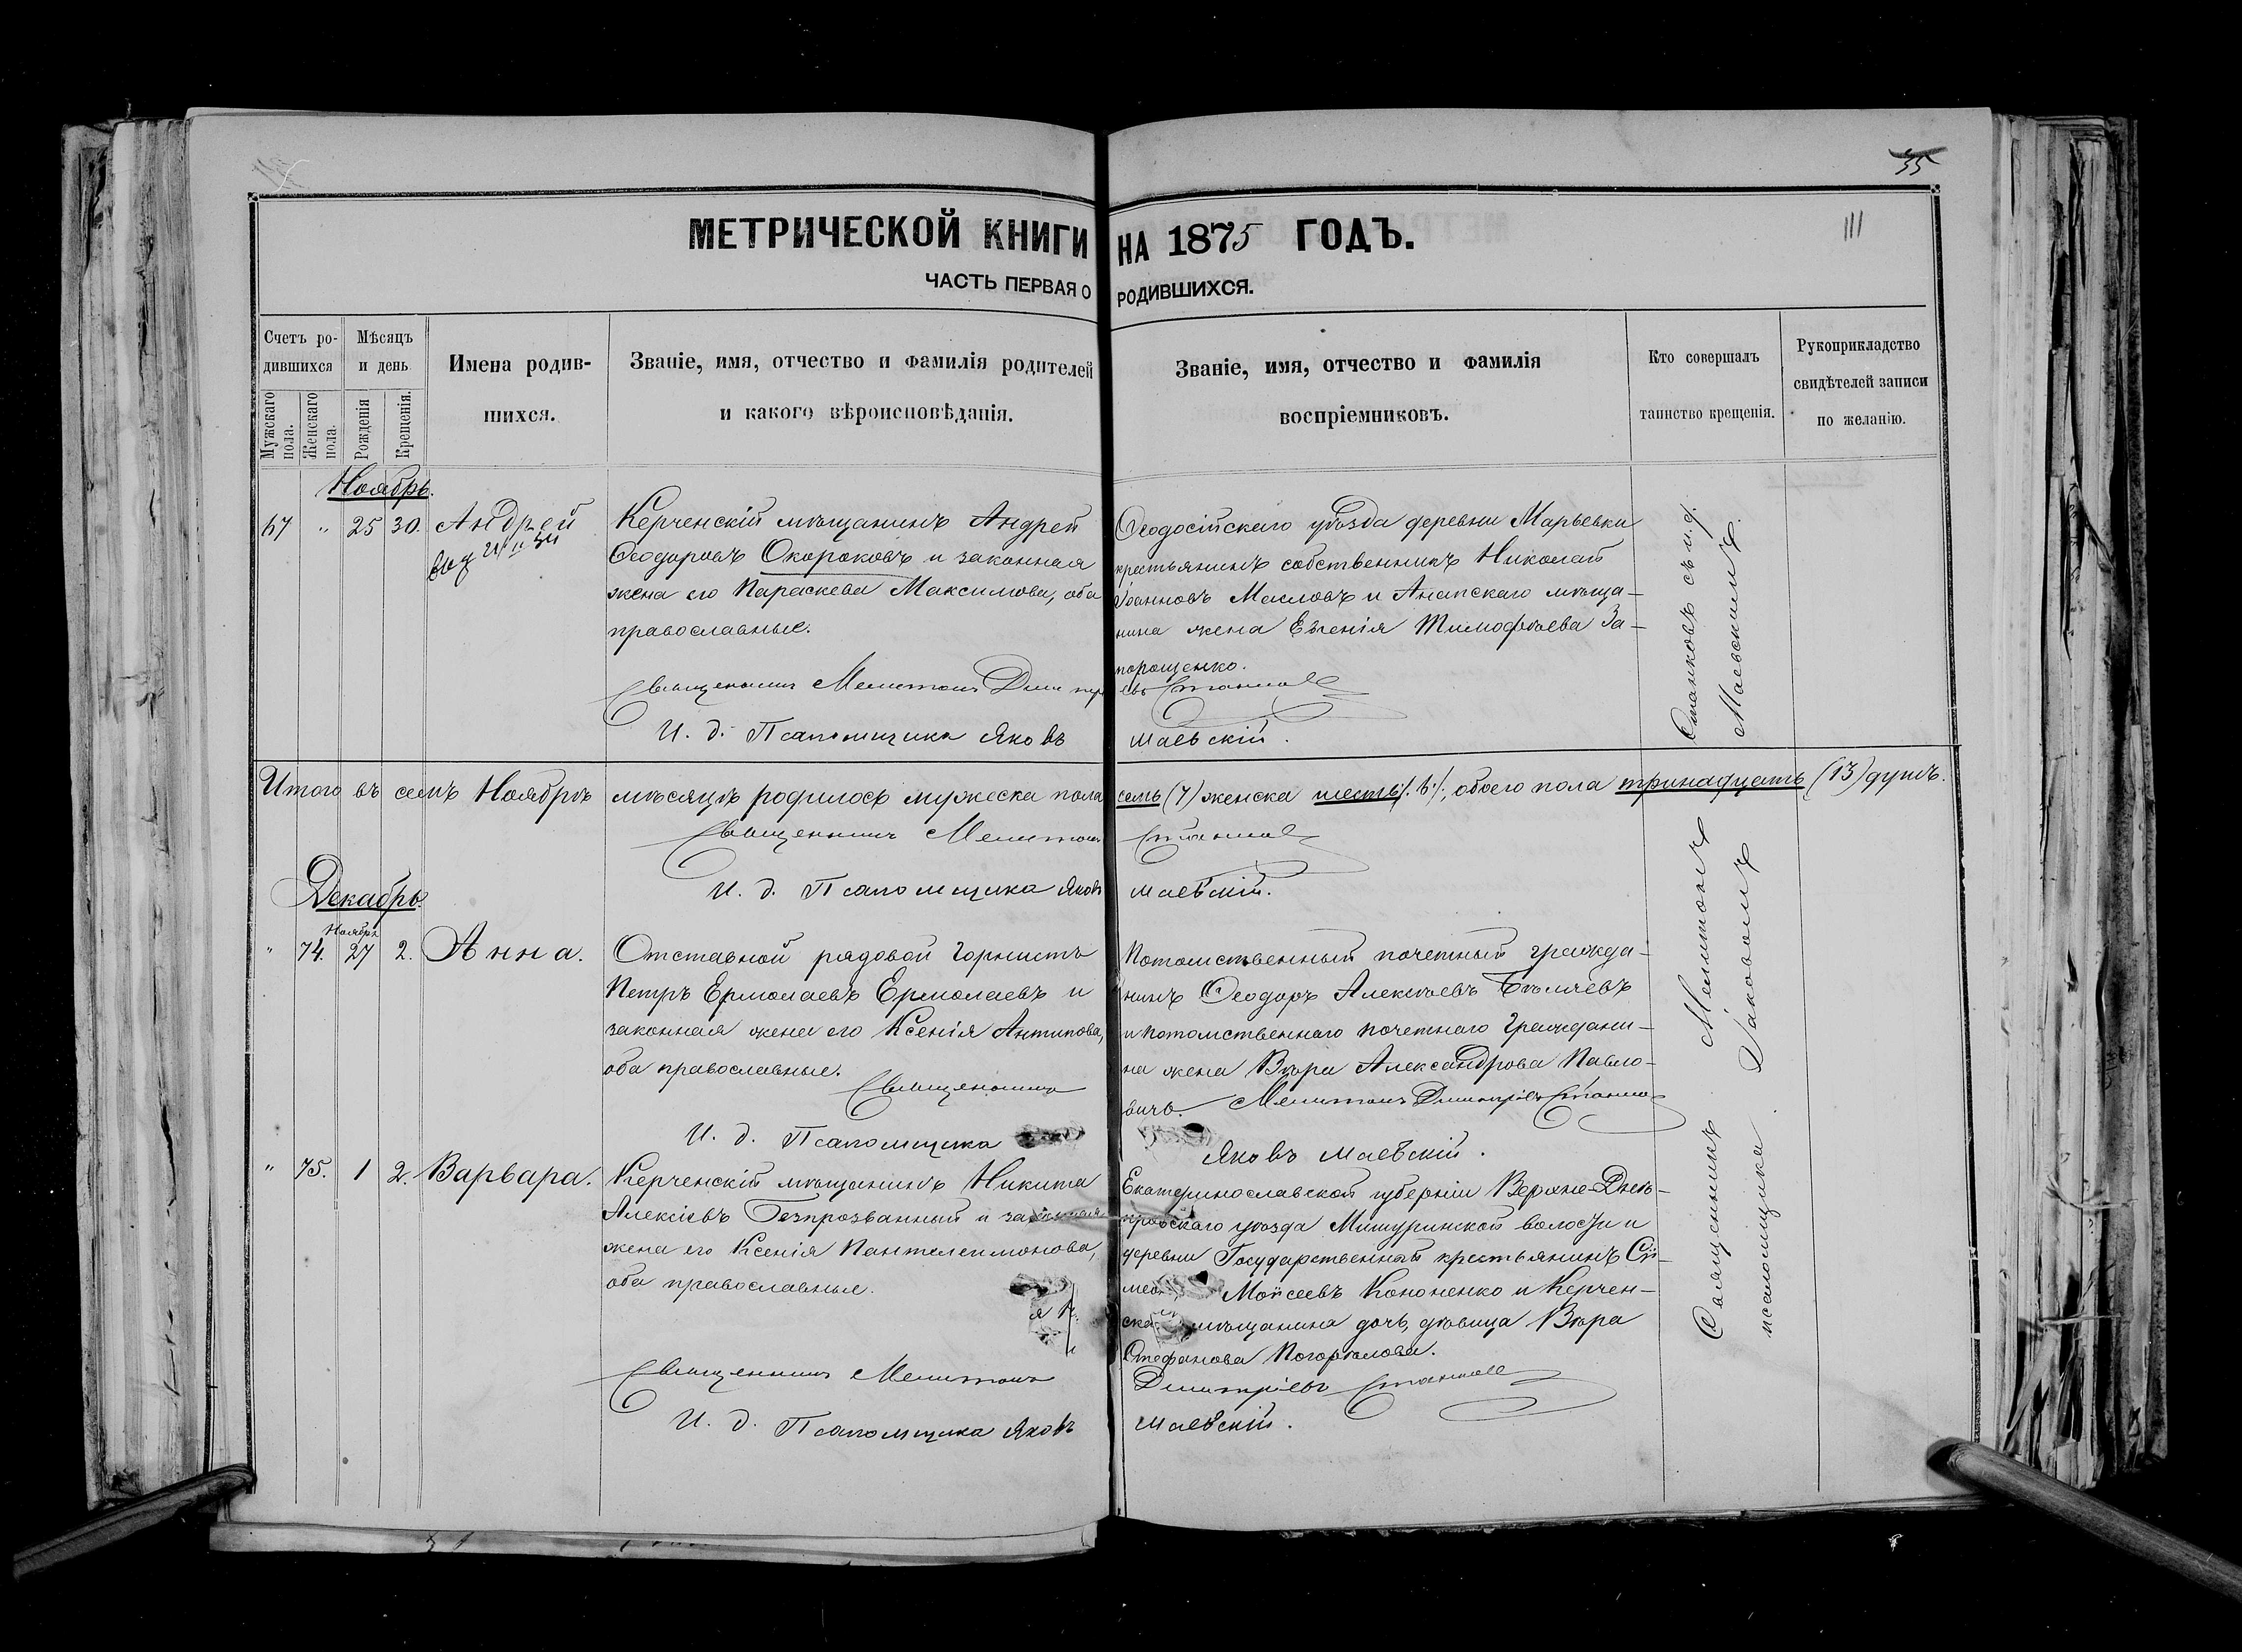 35
111
МЕТРИЧЕСКОЙ КНИГИ НА 1875 ГОДЪ.
ЧАСТЬ ПЕРВАЯ О РОДИВШИХСЯ.
Счетъ ро-
дившихся
Мужскаго пола.
Женскаго пола.
Мѣсяцъ
и день
Рожденія
Крещенія.
Имена родив-
шихся.
Званіе, имя, отчество и фамилія родителей
и какого вѣроисповѣданія.
Званіе, имя, отчество и фамилія
воспріемниковъ.
Кто совершалъ
таинство крещенія.
Рукоприкладство
свидѣтелей записи
по желанію.
Ноябрь.
67 " 25 30. Андрей
Керченскій мѣщанинъ Андрей
Ѳеодоровъ Окороковъ и законная
жена его Параскева Максимова, оба
православные.
Ѳеодосійскаго уѣзда деревни Марьевки
крестьянинъ собственникъ Николай
Іоанновъ Масловъ и Анапскаго мѣща-
нина жена Евгенія Тимофѣева За-
порощенко.
Священникъ Мелитонъ Димитріевъ Станковъ
И. д. Псаломщика Яковъ Маевскій.
Станковъ съ и. д.
Маевскимъ.
Итого въ семъ Ноябрѣ мѣсяцѣ родилось мужеска пола семь (7) женска шесть /:6:/, обоего пола тринадцать (13) душъ.
Священникъ Мелитонъ Станковъ
И. д. Псаломщика Яковъ Маевскій.
Декабрь.
Ноября
" 74. 27 2. Анна.
Отставной рядовой Горнистъ
Петръ Ермолаевъ Ермолаевъ и
законная жена его Ксенія Антипова,
оба православные.
Потомственный почетный гражда-
нинъ Ѳеодоръ Алексѣевъ Бѣляевъ
и потомственнаго почетнаго Граждани-
на жена Вѣра Александрова Павло-
вичъ.
Священникъ Мелитонъ Димитріевъ Станковъ
И. д. Псаломщика Яковъ Маевскій.
" 75. 1 2. Варвара.
Керченскій мѣщанинъ Никита
Алексіевъ Безпрозванный и законная
жена его Ксенія Пантелеимонова,
оба православные.
Екатеринославской губерніи Верхне-Днѣ-
провскаго уѣзда Мишуринской волости и
деревни Государственный крестьянинъ Си-
Моѵсеевъ Кононенко и Керчен-
мѣщанина дочь, дѣвица Вѣра
Стефанова Погорѣлова.
Священникъ Мелитонъ Димитріевъ Станковъ
И. д. Псаломщика Яковъ Маевскій.
Священникъ Мелитонъ
псаломщика Іаковомъ